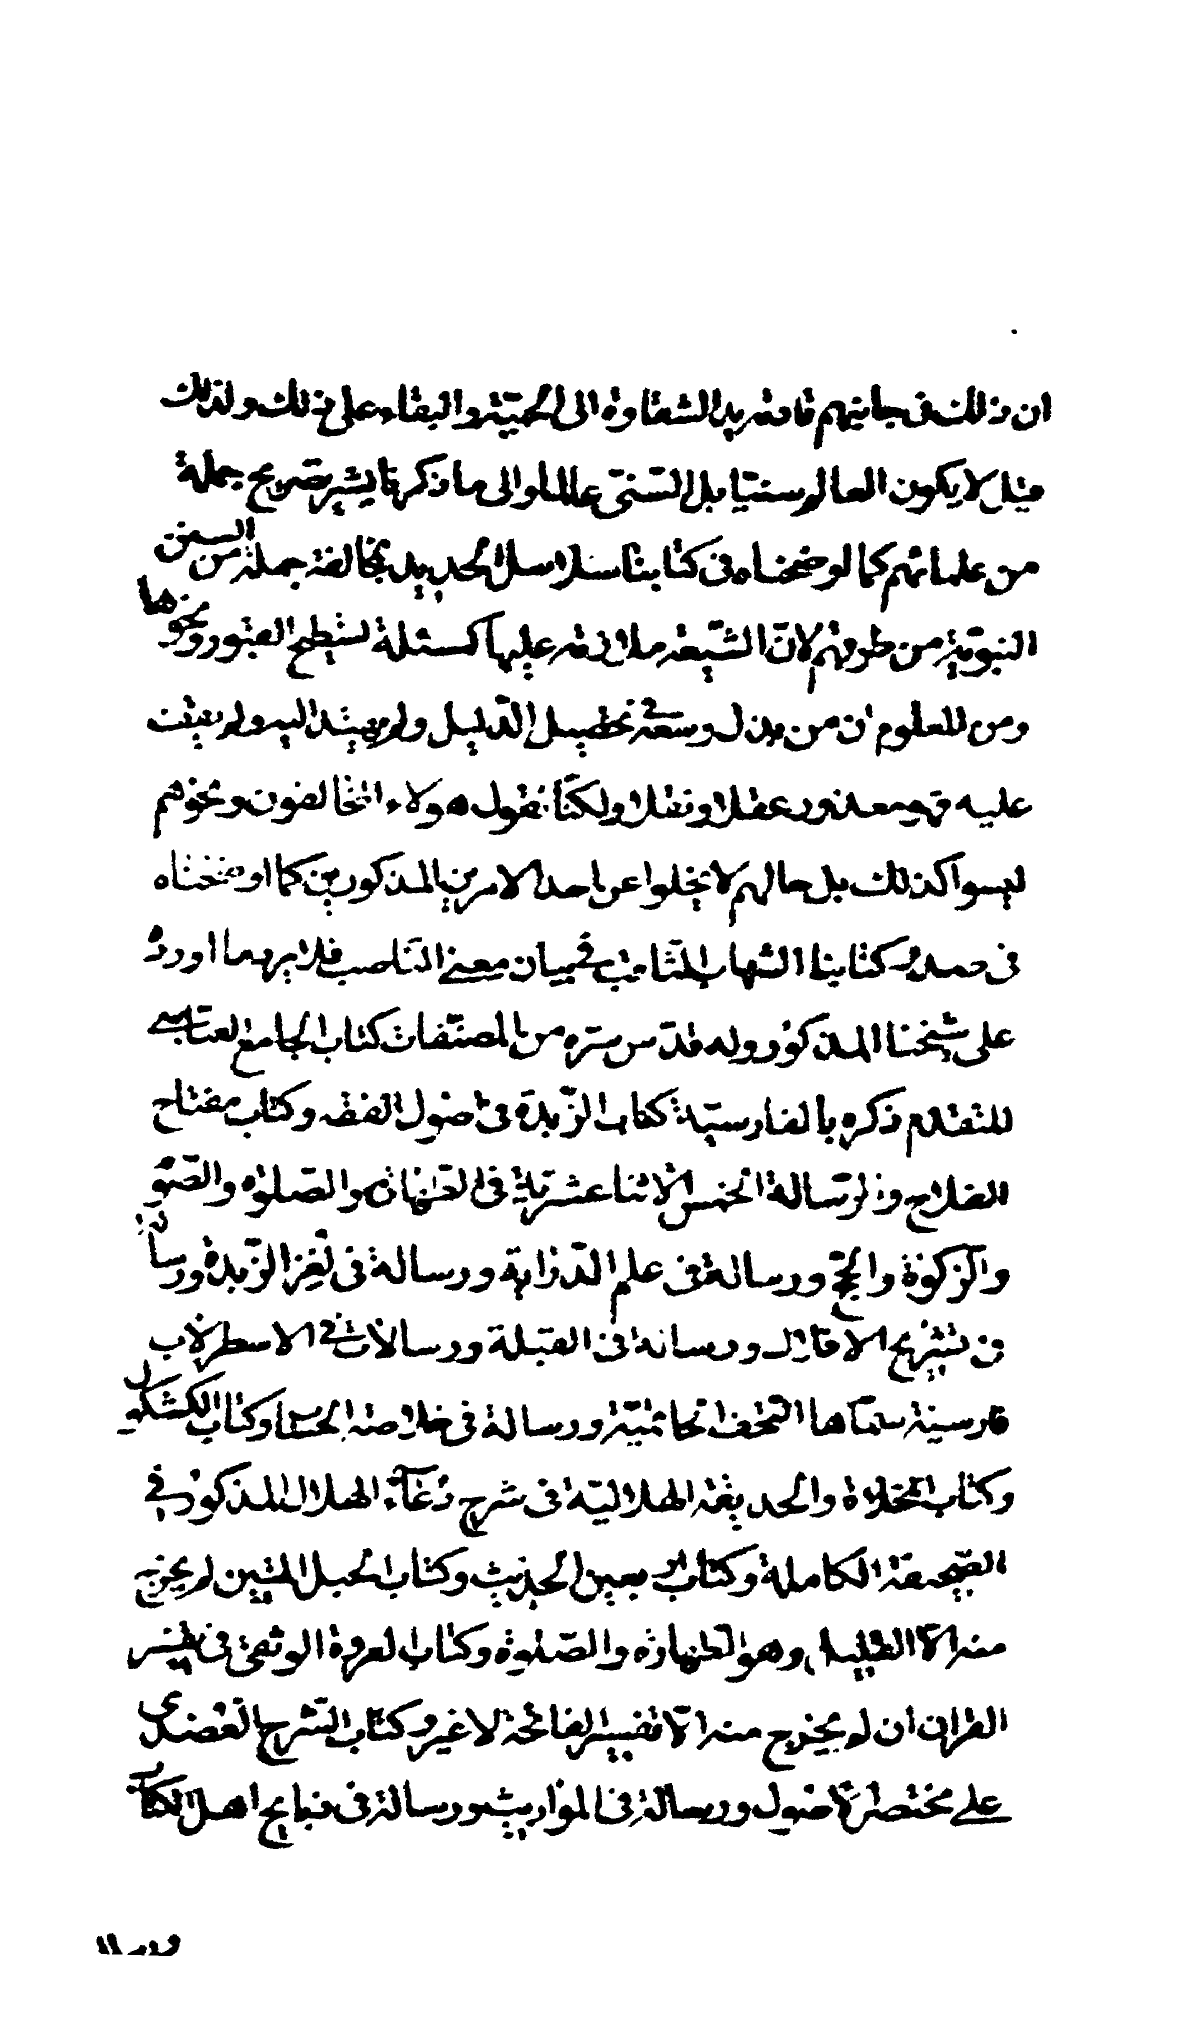 ان ذلك فى جانبهم قادتهم يد الشقاوة الى الحميّة والبقاء على ذلك ولذلك
قيل لا يكون العالم سنيّا بل السّنى عالما والى ما ذكرنا يشير تصريح جملة
من علمائهم كما اوضحناه فى كتابنا سلاسل الحديد بمخالفة جملة من السنن
النبويّة من طرقهم لانّ الشّيعة ملازمة عليها كمسئلة تسطيح القبور ونحوها
ومن المعلوم ان من بذل وسعه فى تحصيل الدّليل ولم يهتد اليه ولم يقف
عليه فهو معذور عقلا ونقلا ولكنّا نقول هولاء المخالفون ونحوهم
ليسوا كذلك بل حالهم لا يخلوا عن احد الامرين المذكورين كما اوضحناه
فى صدر كتابنا الشهاب الثاقب فى بيان معنى الناصب فلا يرد ما اورده
على شيخنا المذكور وله قدّس سرّه من المصنّفات كتاب الجامع العبّاسى
المتقدم ذكره بالفارسيّة كتاب الزّبدة فى اصول الفقه وكتاب مفتاح
الفلاح والرّسالة الخمس الاثنا عشريّة فى الطّهارة والصّلوة والصّوم
والزّكوة والحجّ ورسالة فى علم الدّراية ورسالة فى لغز الزّبدة ورسالة
فى تشريح الافلاك ورسالة فى القبلة ورسالات فى الاسطرلاب
فارسية سمّاها التحفة الحاتميّة ورسالة فى خلاصة الحساب وكتاب الكشكول
وكتاب المخلاة والحديقة الهلاليّة فى شرح دعاء الهلال المذكور فى
الصّحيفة الكاملة وكتاب اربعين الحديث وكتاب الحبل المتين لم يخرج
منه الّا القليل وهو الطهارة والصّلوة وكتاب العروة الوثقى فى تفسير
القران ان لم يخرج منه الّا تفسير الفاتحة لا غير وكتاب الشّرح العضدى
على مختصر الاصول ورسالة فى المواريث ورسالة فى ذبايح اهل الكتاب